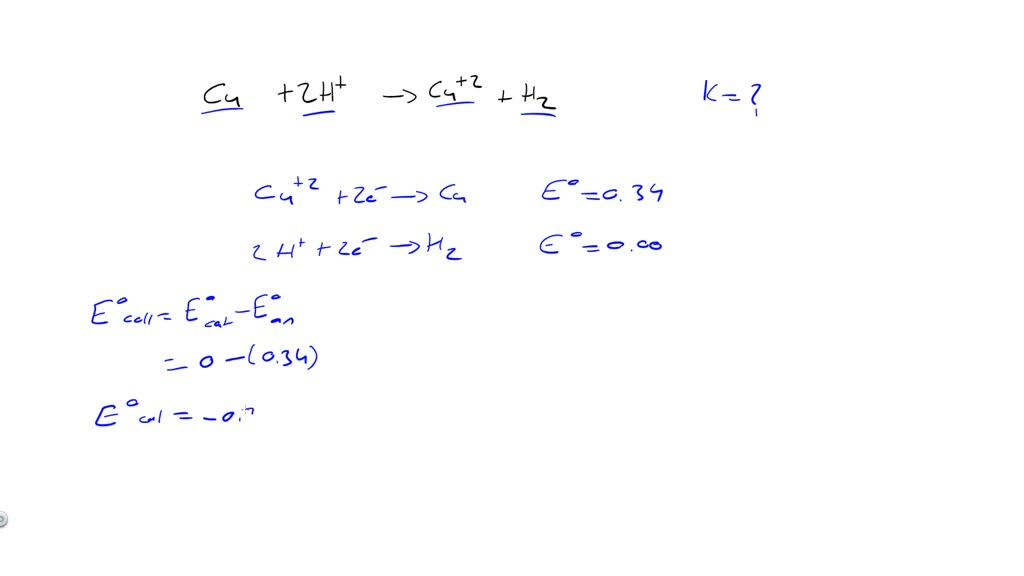 Cu + 2H⁺ → Cu⁺² + H₂ K = ?
Cu⁺² + 2e⁻ → Cu E° = 0.34
2H⁺ + 2e⁻ → H₂ E° = 0.00
E°cell = E°cat − E°an
= 0 − (0.34)
E°cell = −0.